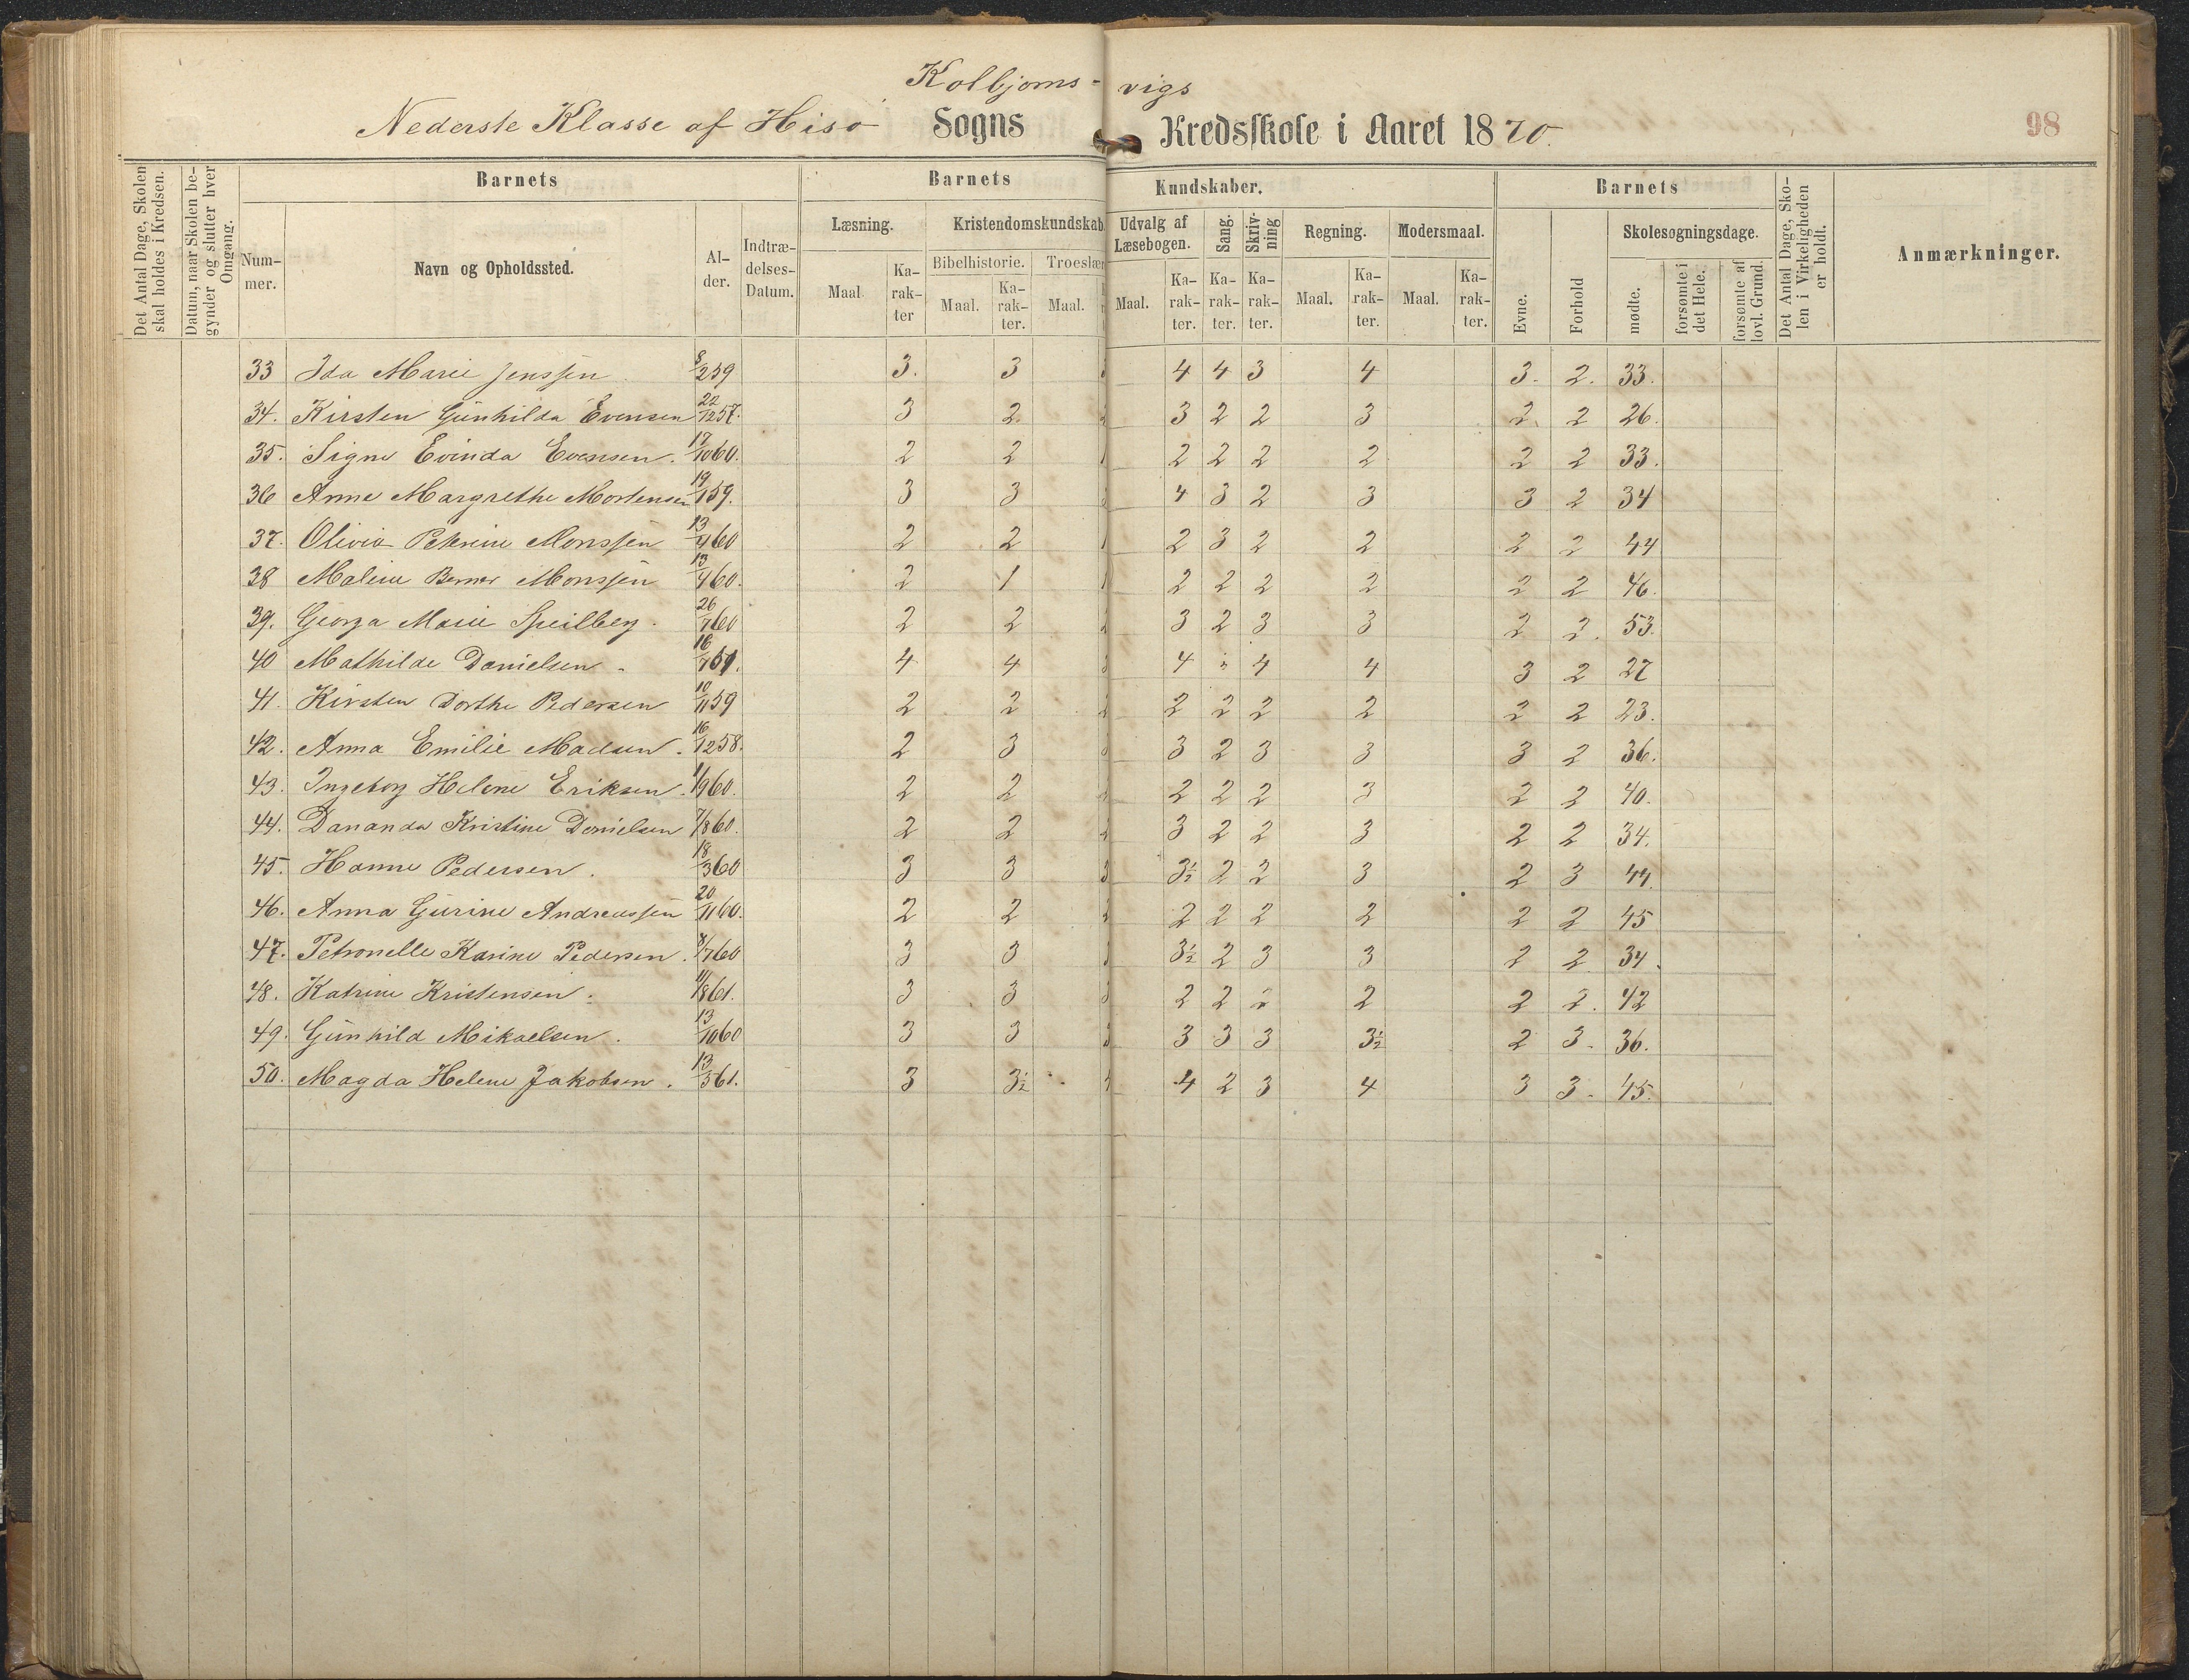 Kolbjorns- vigs
Nederste Klasse af Hisø Sogns Kredsskole i Aaret 1870.
98
Det Antal Dage, Skolen skal holdes i Kredsen.
Datum, naar Skolen begynder og slutter hver Omgang.
Barnets
Barnets Kundskaber.
Barnets
Det Antal Dage, Skolen i Virkeligheden er holdt.
Anmærkninger.
Nummer.
Navn og Opholdssted.
Alder.
Indtrædelses-Datum.
Læsning.
Kristendomskundskab.
Udvalg af Læsebogen.
Sang.
Skrivning
Regning.
Modersmaal.
Evne.
Forhold
Skolesøgningsdage.
Bibelhistorie.
Troeslær
Maal. Karakter Maal. Karakter. Maal. Maal. Karakter. Karakter. Karakter. Maal. Karakter. Maal. Karakter.
mødte.
forsømte i det Hele.
forsømte af lovl. Grund.
33 Ida Marie Jenssen 8/2 59 3. 3 3 4 4 3 4 3. 2. 33.
34. Kirsten Gunhilda Evensen 22/12 57. 3 2. 2 3 2 2 3 2. 2 26.
35. Signe Evinda Evensen. 17/10 60. 2 2 1 2 2 2 2 2 2 33.
36 Anne Margrethe Mortensen 19/1 59. 3 3 3 4 3 2 3 3 2 34
37. Olivia Petrine Monssen 13/4 60 2 2 1 2 3 2 2 2 2 44
38 Maline Berner Monssen 13/4 60. 2 1 1 2 2 2 2 2 2 46.
39. Georga Marie Speilberg. 26/7 60 2 2 2 3 2 3 3 2 2. 53.
40 Mathilde Danielsen 16/7 4 4 3 4 4 4 3 2 27
41. Kirsten Dorthe Pedersen 10/11 59 2 2 2 2 2 2 2 2 2 23.
42. Anna Emilie Madsen. 16/12 58. 2 3 3 3 2 3 3 3 2 36.
43. Ingeborg Helene Eriksen. 1/9 60. 2 2 2 2 2 2 3 2 2 40.
44. Dananda Kristine Danielsen 7/8 60. 2 2 2 3 2 2 3 2 2 34.
45. Hanne Pedersen. 18/3 60 3 3 3 3½ 2 2 3 2 3 44.
46. Anna Gurine Andreassen 20/11 60. 2 2 2 2 2 2 2 2 2 45
47. Petronelle Karine Pedersen. 8/7 60 3 3 3 3½ 2 3 3 2 2. 34.
48. Katrine Kristensen. 11/8 61. 3 3 3 2 2 2 2 2 2. 42
49. Gunhild Mikaelsen. 13/10 60 3 3 3 3 3 3 3½ 2 3. 36.
50. Magda Helene Jakobsen. 13/3 61. 3 3½ 4 2 3 4 3 3. 45.